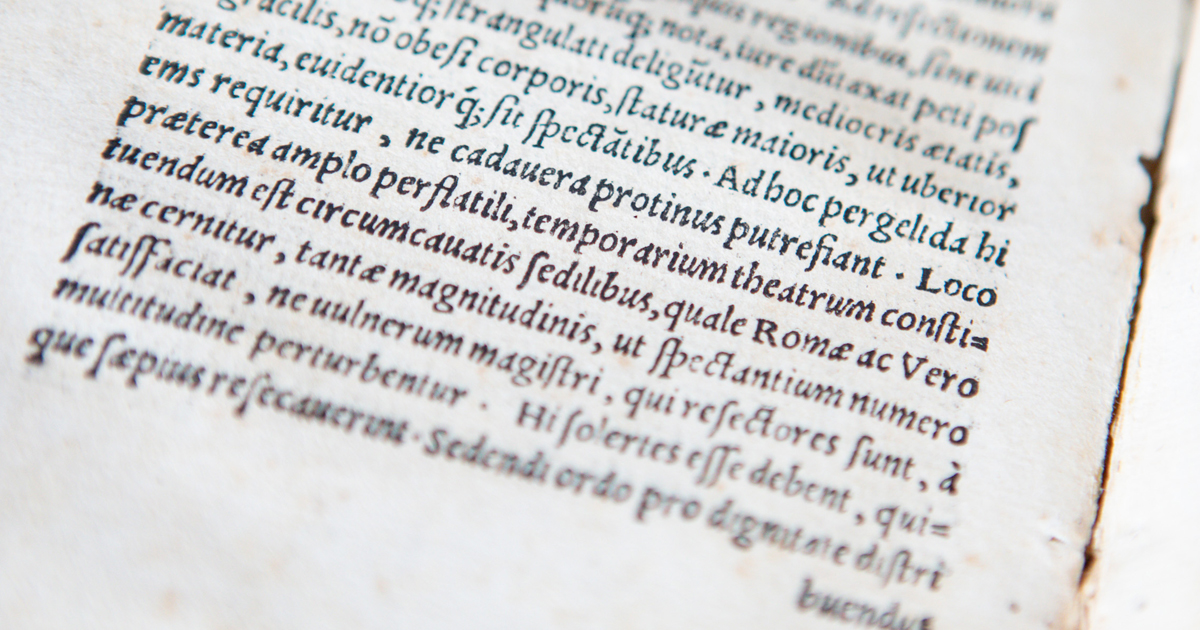 Ad resectionem
regionibus, sine uici
quorūq; nota, iure dūtaxat peti pos
q; strangulati deligūtur, mediocris ætatis,
gracilis, nō obesi corporis, staturæ maioris, ut uberior
materia, euidentiorq́; sit spectātibus. Ad hoc pergelida hi
ems requiritur, ne cadauera protinus putrefiant. Loco
præterea amplo perflatili, temporarium theatrum consti=
tuendum est circumcauatis sedilibus, quale Romæ ac Vero
næ cernitur, tantæ magnitudinis, ut spectantium numero
satisfaciat, ne uulnerum magistri, qui resectores sunt, à
multitudine perturbentur. Hi solertes esse debent, qui=
que sæpius resecauerint. Sedendi ordo pro dignitate distri
buendus